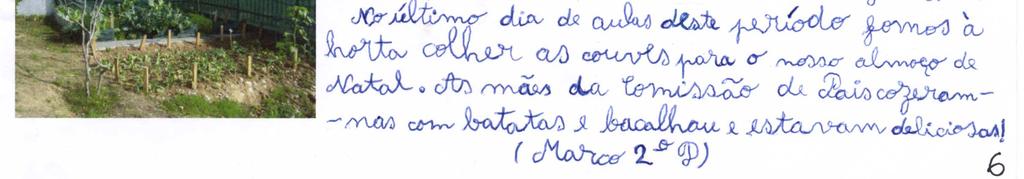 No último dia de aulas deste período fomos à
horta colher as couves para o nosso almoço de
Natal. As mães da Comissão de Pais cozeram-
-nas com batatas e bacalhau e estavam deliciosas!
(Marco 2º D)
6